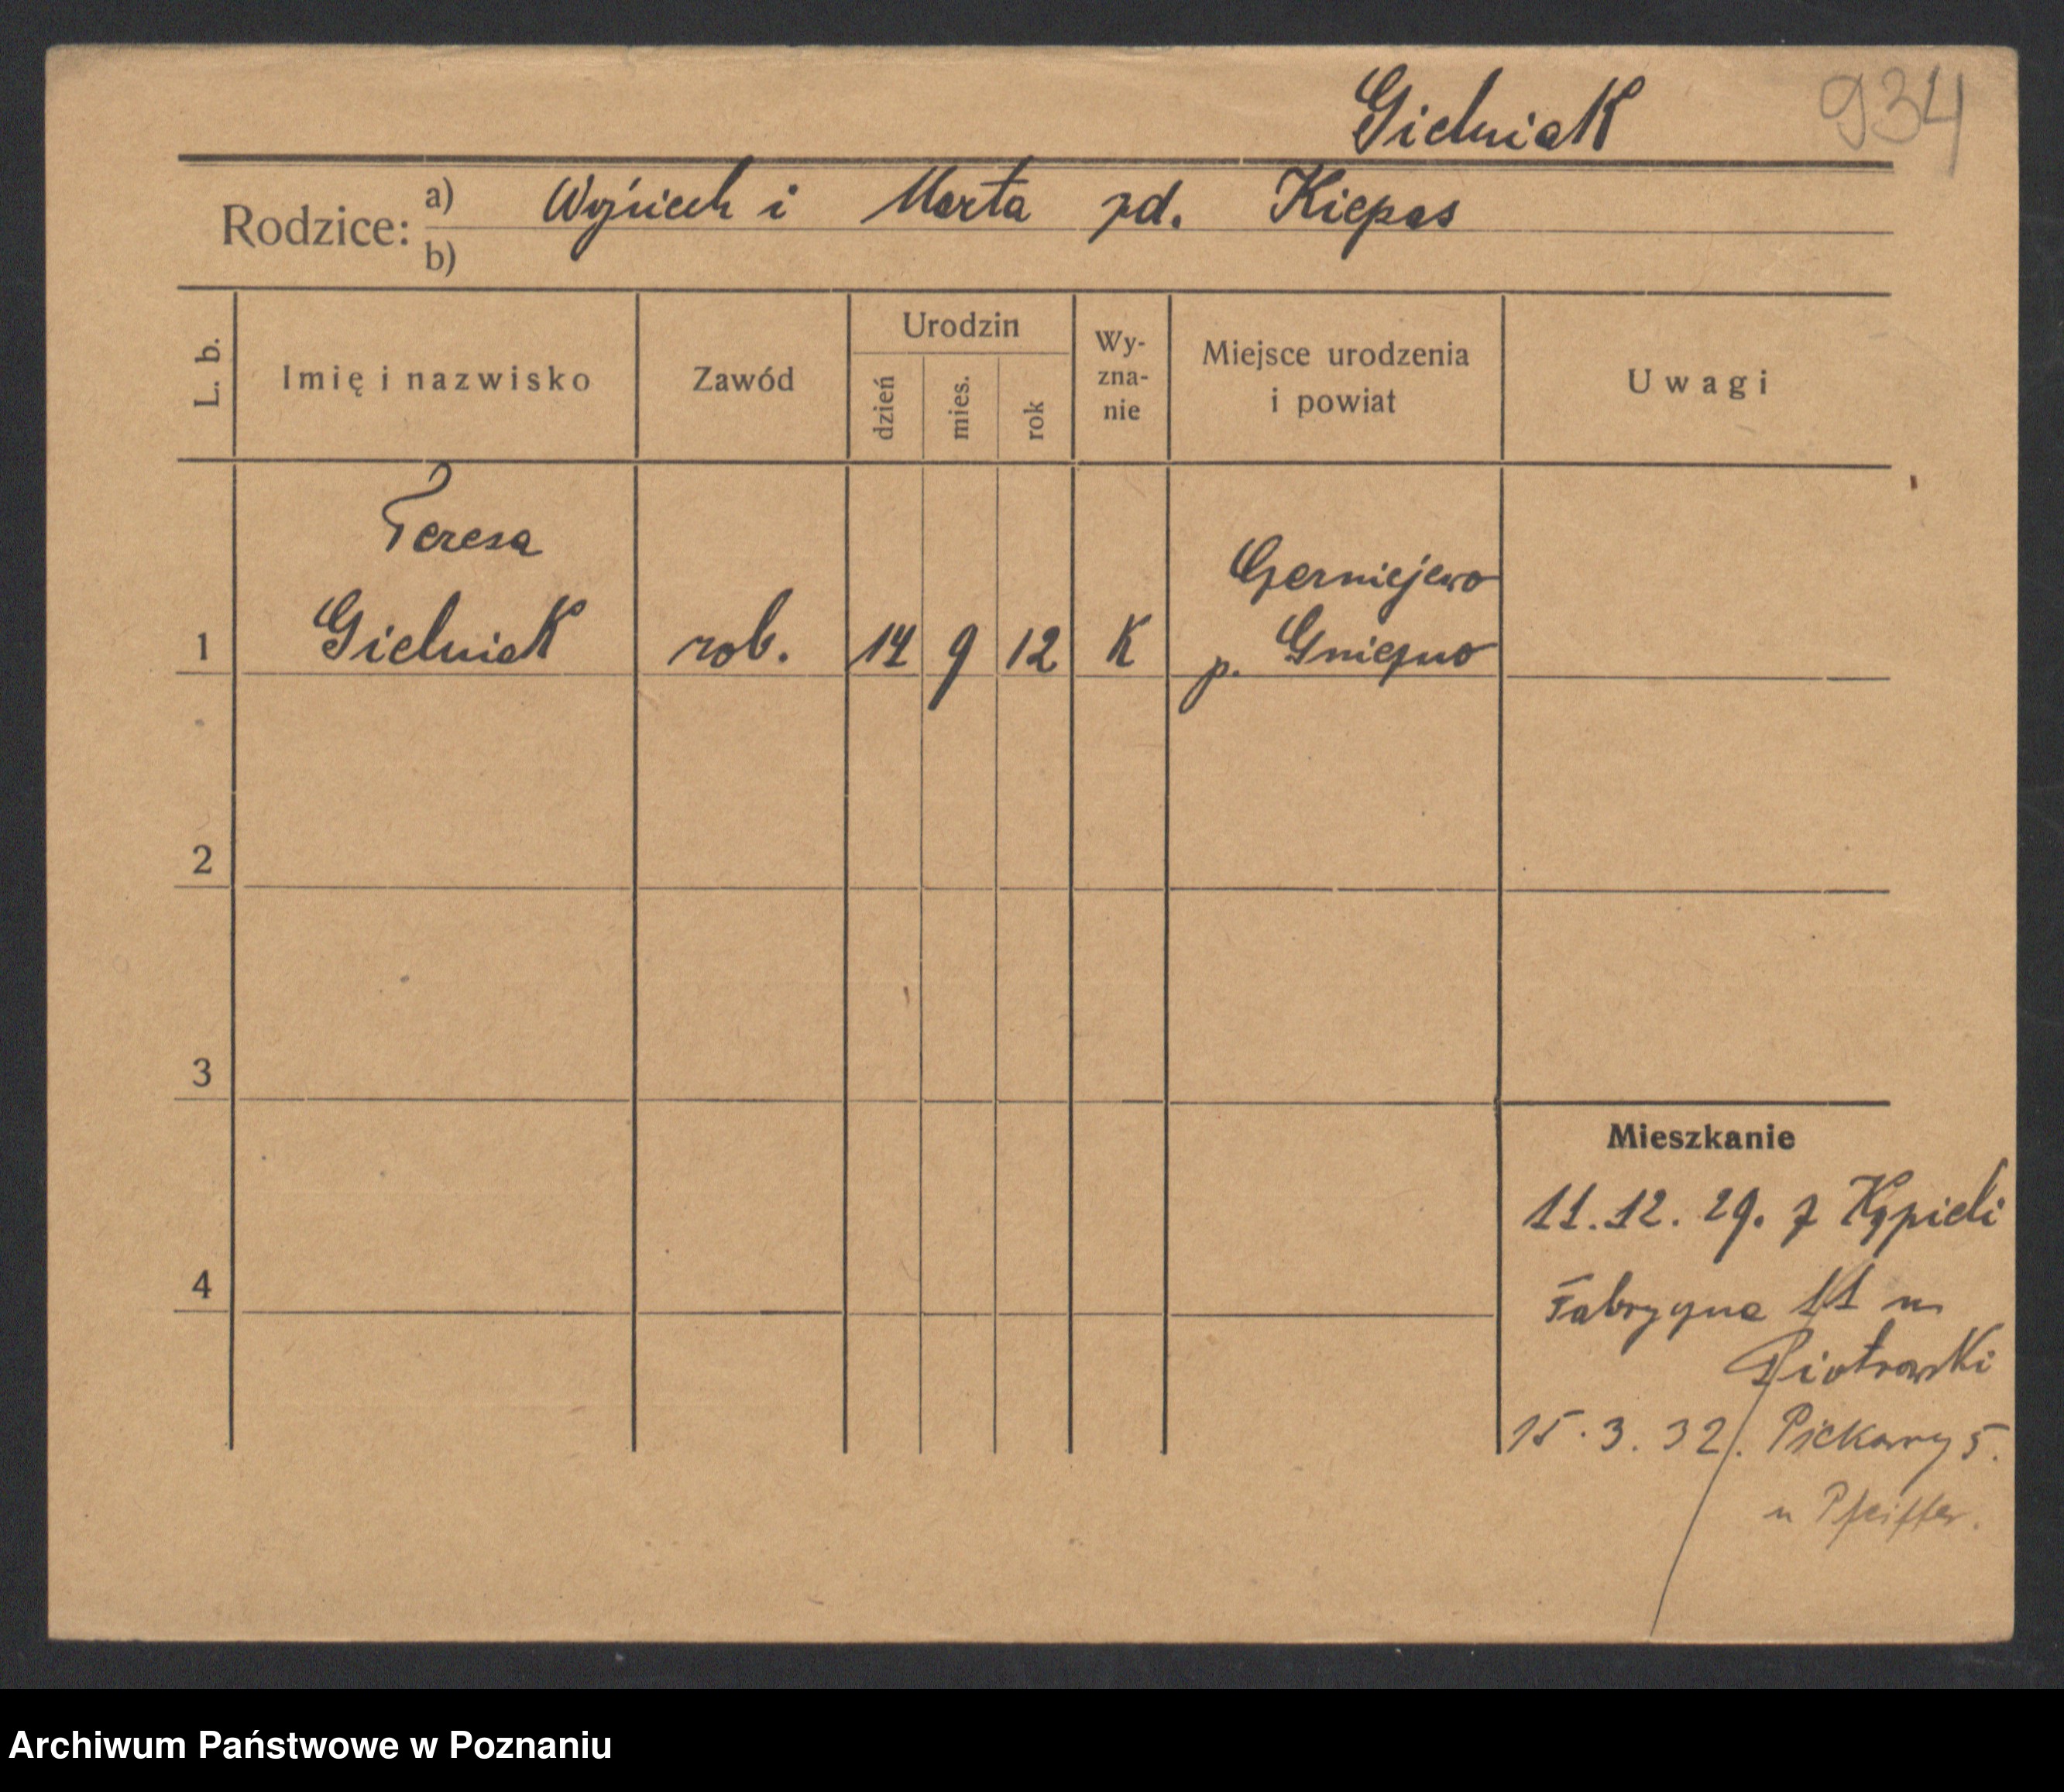 Gielniak 934
Rodzice: a) Wojciech i Marta zd. Kiepas
b)
L. b. Imię i nazwisko Zawód Urodzin dzień mies. rok Wy-zna-nie Miejsce urodzenia i powiat Uwagi
Teresa
Czerniejewo
1 Gielniak rob. 14 9 12 K p. Gniezno
2
3
Mieszkanie
11.12.29. z Kąpieli
4
Fabryczna 11 u
Piotrowski
15.3.32. Piekary 5.
u Pfeiffer.
Archiwum Państwowe w Poznaniu